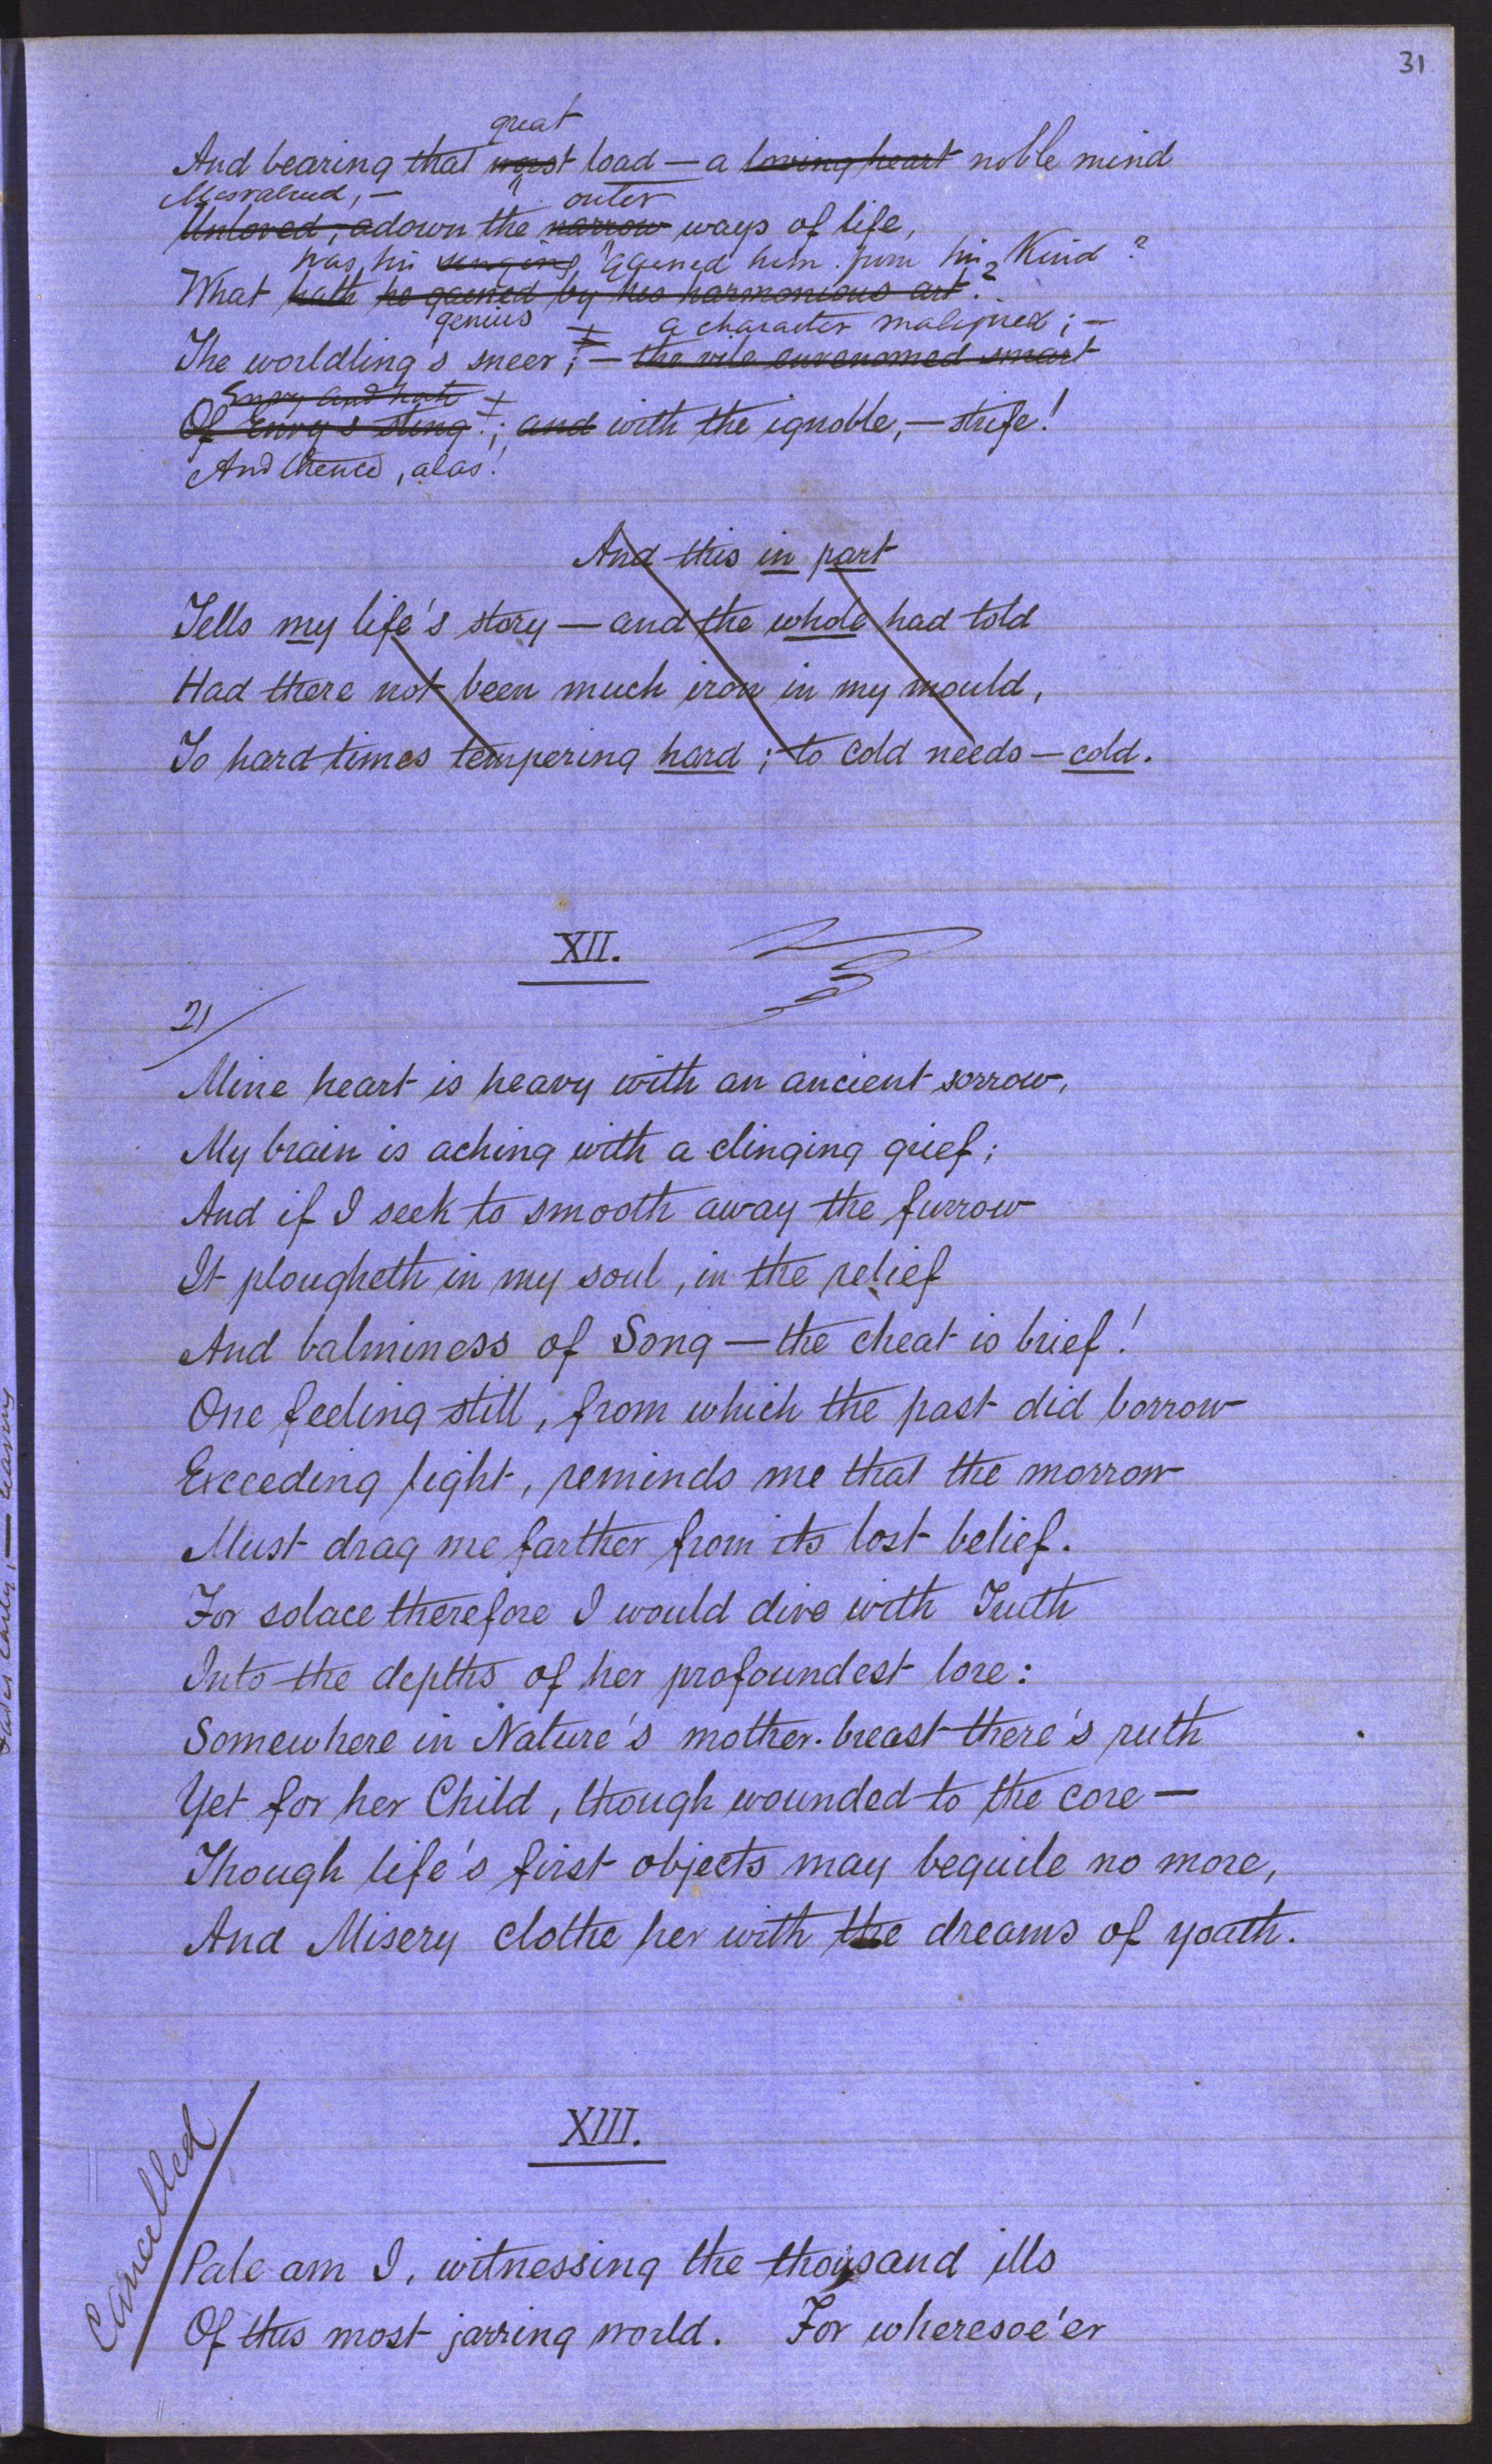 31
great
And bearing that worst load — a loving heart noble mind
Misvalued, — outer
Unloved, adown the narrow ways of life,
has his singing gained him from his Kind?
What hath he gained by his harmonious art?
genius a character maligned; —
The worldling's sneer; — the vile envenomed smart
Envy and hate
Of Envy's sting; and with the ignoble, — strife!
And thence, alas!
And this in part
Tells my life's story — and the whole had told
Had there not been much iron in my mould,
To hard times tempering hard; to cold needs — cold.
XII.
21
Mine heart is heavy with an ancient sorrow,
My brain is aching with a clinging grief;
And if I seek to smooth away the furrow
It plougheth in my soul, in the relief
And balminess of Song — the cheat is brief!
One feeling still, from which the past did borrow
Exceeding light, reminds me that the morrow
Must drag me farther from its lost belief.
For solace therefore I would dive with Truth
Into the depths of her profoundest lore:
Somewhere in Nature's mother-breast there's ruth
Yet for her Child, though wounded to the core —
Though life's first objects may beguile no more,
And Misery clothe her with the dreams of youth.
XIII.
Cancelled
Pale am I, witnessing the thousand ills
Of this most jarring world. For wheresoe'er